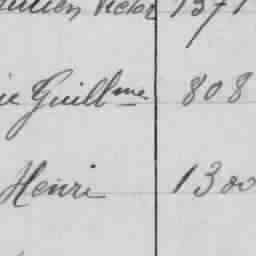 Victor 1371
Guillme 808
Henri 1300